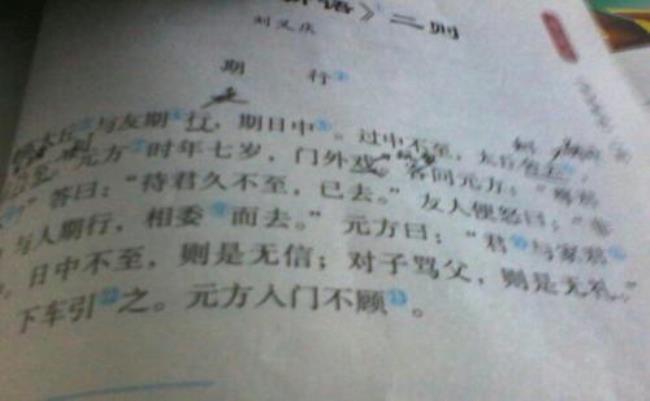 语》二则
刘义庆
期 行
太丘与友期行，期日中。过中不至，太丘舍去，
元方时年七岁，门外戏。客问元方：“尊君
”答曰：“待君久不至，已去。”友人便怒曰：“非
与人期行，相委而去。”元方曰：“君与家君
日中不至，则是无信；对子骂父，则是无礼。”
下车引⑫之。元方入门不顾⑬。